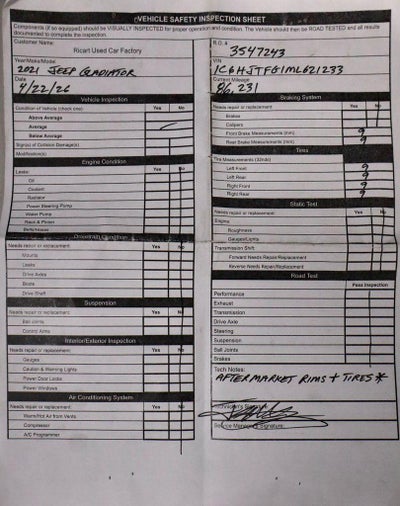 VEHICLE SAFETY INSPECTION SHEET
Components (if so equipped) should be VISUALLY INSPECTED for proper operation and condition. The Vehicle should then be ROAD TESTED and all results
documented to complete the inspection.
Customer Name:
Ricart Used Car Factory
Year/Make/Model:
2021 JEEP GLADIATOR
Date
4/22/26
R.O. #
3547243
VIN
1C6HJTFG1ML621233
Current Mileage
86,231
Vehicle Inspection
Condition of Vehicle (check one) Yes No
Above Average
Average
Below Average
Sign(s) of Collision Damage(s)
Modification(s)
Engine Condition
Leaks: Yes No
Oil
Coolant
Radiator
Power Steering Pump
Water Pump
Rack & Pinion
Belts/Hoses
Drivetrain Condition
Needs repair or replacement: Yes No
Mounts
Leaks
Drive Axles
Boots
Drive Shaft
Suspension
Needs repair or replacement: Yes No
Ball Joints
Control Arms
Interior/Exterior Inspection
Needs repair or replacement: Yes No
Gauges
Caution & Warning Lights
Power Door Locks
Power Windows
Air Conditioning System
Needs repair or replacement: Yes No
Warm/Hot Air from Vents
Compressor
A/C Programmer
Braking System
Needs repair or replacement: Yes No
Brakes
Calipers
Front Brake Measurements (mm) 9
Rear Brake Measurements (mm) 9
Tires
Tire Measurements (32nds)
Left Front 9
Left Rear 9
Right Front 9
Right Rear 9
Static Test
Needs repair or replacement: Yes No
Engine
Roughness
Gauges/Lights
Transmission Shift:
Forward Needs Repair/Replacement
Reverse Needs Repair/Replacement
Road Test
Pass Inspection
Performance
Exhaust
Transmission
Drive Axle
Steering
Suspension
Ball Joints
Brakes
Tech Notes:
AFTERMARKET RIMS + TIRES *
Service Manager's Signature: